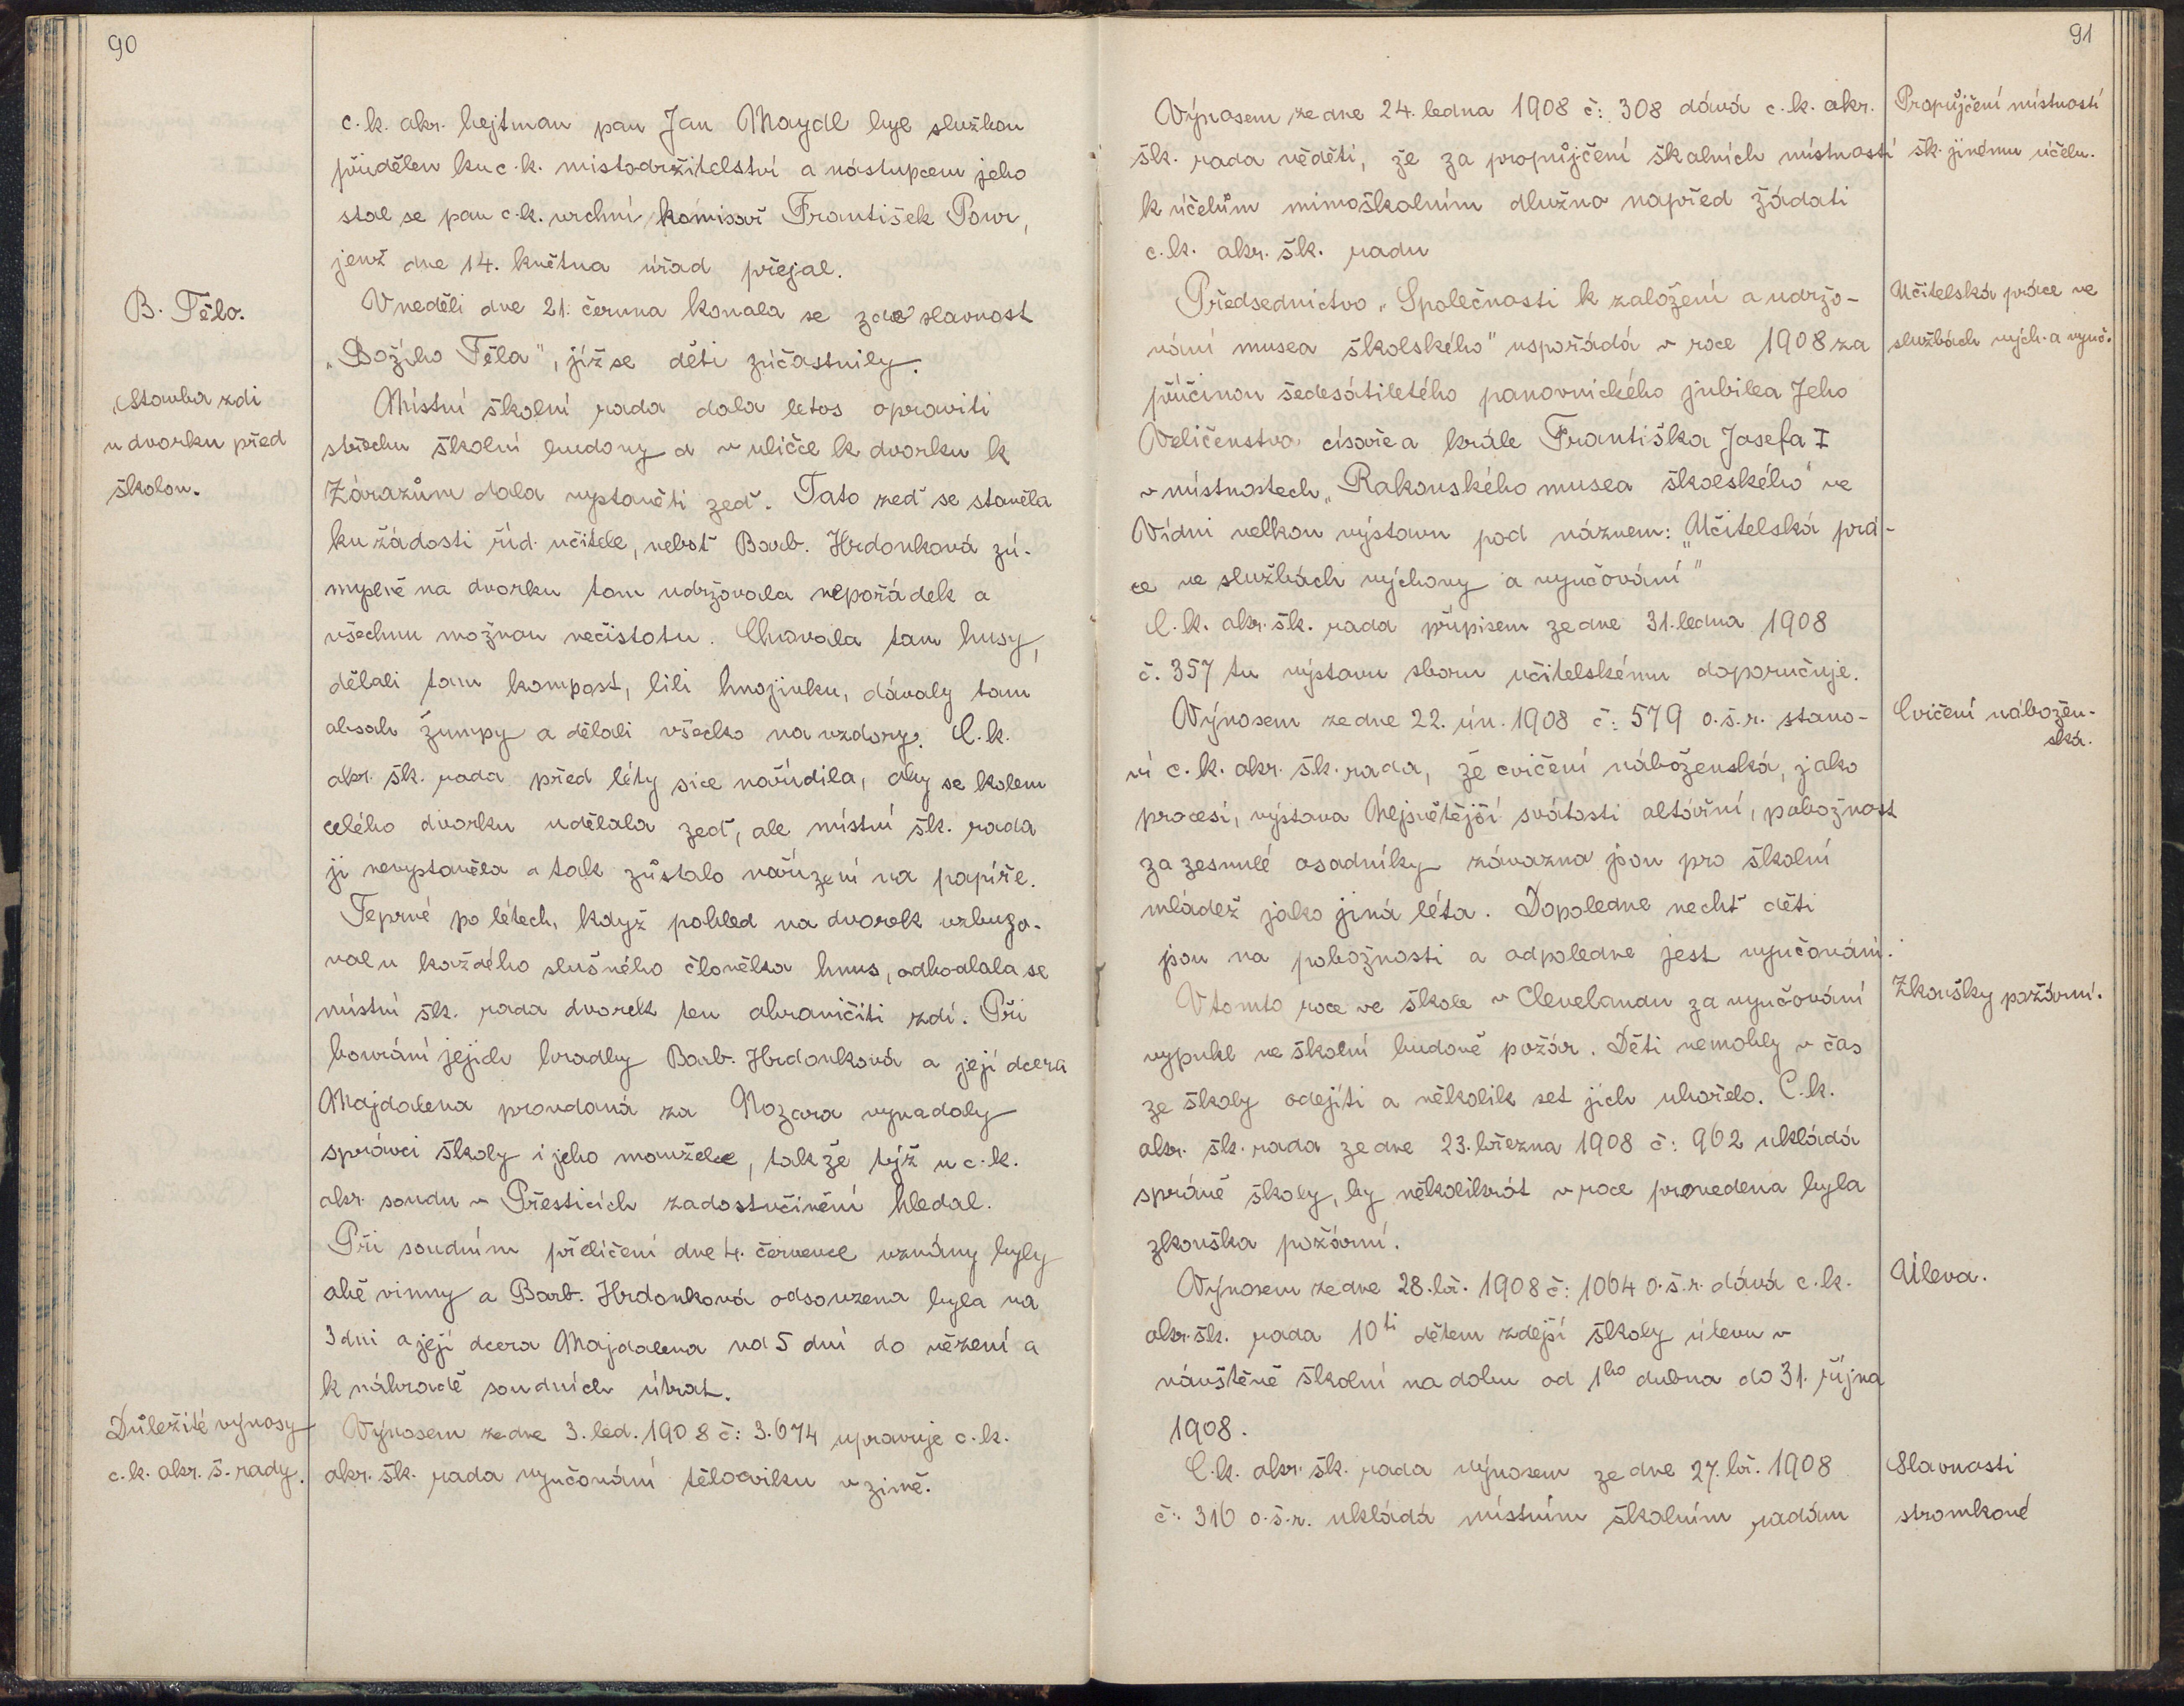 90
c. k. okr. hejtman pan Jan Maydl byl službou
přidělen ku c. k. mistodržitelství a nástupcem jeho
stal se pan c. k. vrchní komisař František Pour,
jenž dne 14. května úřad přejal.
B. Tělo.
V neděli dne 21. června konala se zde slavnost
„Božího Těla", jíž se děti zúčastnily.
Stavba zdi
u dvorku před
školou.
Místní školní rada dala letos opraviti
střechu školní budovy a v uličce k dvorku k
Zárazům dala vystavěti zeď. Tato zeď se stavěla
ku žádosti říd. učitele, neboť Barb. Hrdonková zú-
myslně na dvorku tom udržovala nepořádek a
všechnu možnou nečistotu. Chovala tam husy,
dělali tam kompost, lili hnojivku, dávaly tam
obsah žumpy a dělali všecko na vzdory. C. k.
okr. šk. rada před léty sice nařídila, aby se kolem
celého dvorku udělala zeď, ale místní šk. rada
ji nevystavěla a tak zůstalo nařízení na papíře.
Teprvé po létech, když pohled na dvorek vzbuzo-
val u každého slušného člověka hnus, odhodlala se
místní šk. rada dvorek ten ohraničiti zdí. Při
bourání jejich hradby Barb. Hrdonková a její dcera
Majdalena provdaná za Nozara vynadaly
správci školy i jeho manželce, takže týž u c. k.
okr. soudu v Přesticích zadostučinění hledal.
Při soudním přelíčení dne 4. července uznány byly
obě vinny a Barb. Hrdonková odsouzena byla na
3 dni a její dcera Majdalena na 5 dní do vězení a
k náhradě soudních útrat.
Důležité výnosy
c. k. okr. š. rady.
Výnosem ze dne 3. led. 1908 č: 3.674 upravuje c. k.
okr. šk. rada vyučování tělocviku v zimě.
91
Výnosem ze dne 24. ledna 1908 č: 308 dává c. k. okr.
šk. rada věděti, že za propůjčení školních místností
k účelům mimoškolním dlužno napřed žádati
c. k. okr. šk. radu
Propůjčení místností
šk. jinému účelu.
Předsednictvo „Společnosti k založení a udržo-
vání musea školského" uspořádá v roce 1908 za
příčinou šedesátiletého panovnického jubilea Jeho
Veličenstva císaře a krále Františka Josefa I
v místnostech „Rakouského musea školského" ve
Vídni velkou výstavu pod názvem: „Učitelská prá-
ce ve službách výchovy a vyučování"
Učitelská práce ve
službách vých. a vyuč.
C. k. okr. šk. rada přípisem ze dne 31. ledna 1908
č. 357 tu výstavu sboru učitelskému doporučuje.
Výnosem ze dne 22. ún. 1908 č: 579 o. š. r. stano-
ví c. k. okr. šk. rada, že cvičení náboženská, jako
procesí, výstava Nejsvětější svátosti oltářní, pobožnost
za zesnulé osadníky závazna jsou pro školní
mládež jako jiná léta. Dopoledne nechť děti
jsou na pobožnosti a odpoledne jest vyučování.
Cvičení nábožen-
ská.
V tomto roce ve škole v Clevelandu za vyučování
vypukl ve školní budově požár. Děti nemohly v čas
ze školy odejíti a několik set jich uhořelo. C. k.
okr. šk. rada ze dne 23. března 1908 č: 962 ukládá
správě školy, by několikrát v roce provedena byla
zkouška požární.
Zkoušky požární.
Výnosem ze dne 28. bř. 1908 č: 1064 o. š. r. dává c. k.
okr. šk. rada 10ti dětem zdejší školy úlevu v
návštěvě školní na dobu od 1ho dubna do 31. října
1908.
Úleva.
C. k. okr. šk. rada výnosem ze dne 27. bř. 1908
č: 316 o. š. r. ukládá místním školním radám
Slavnosti
stromkové